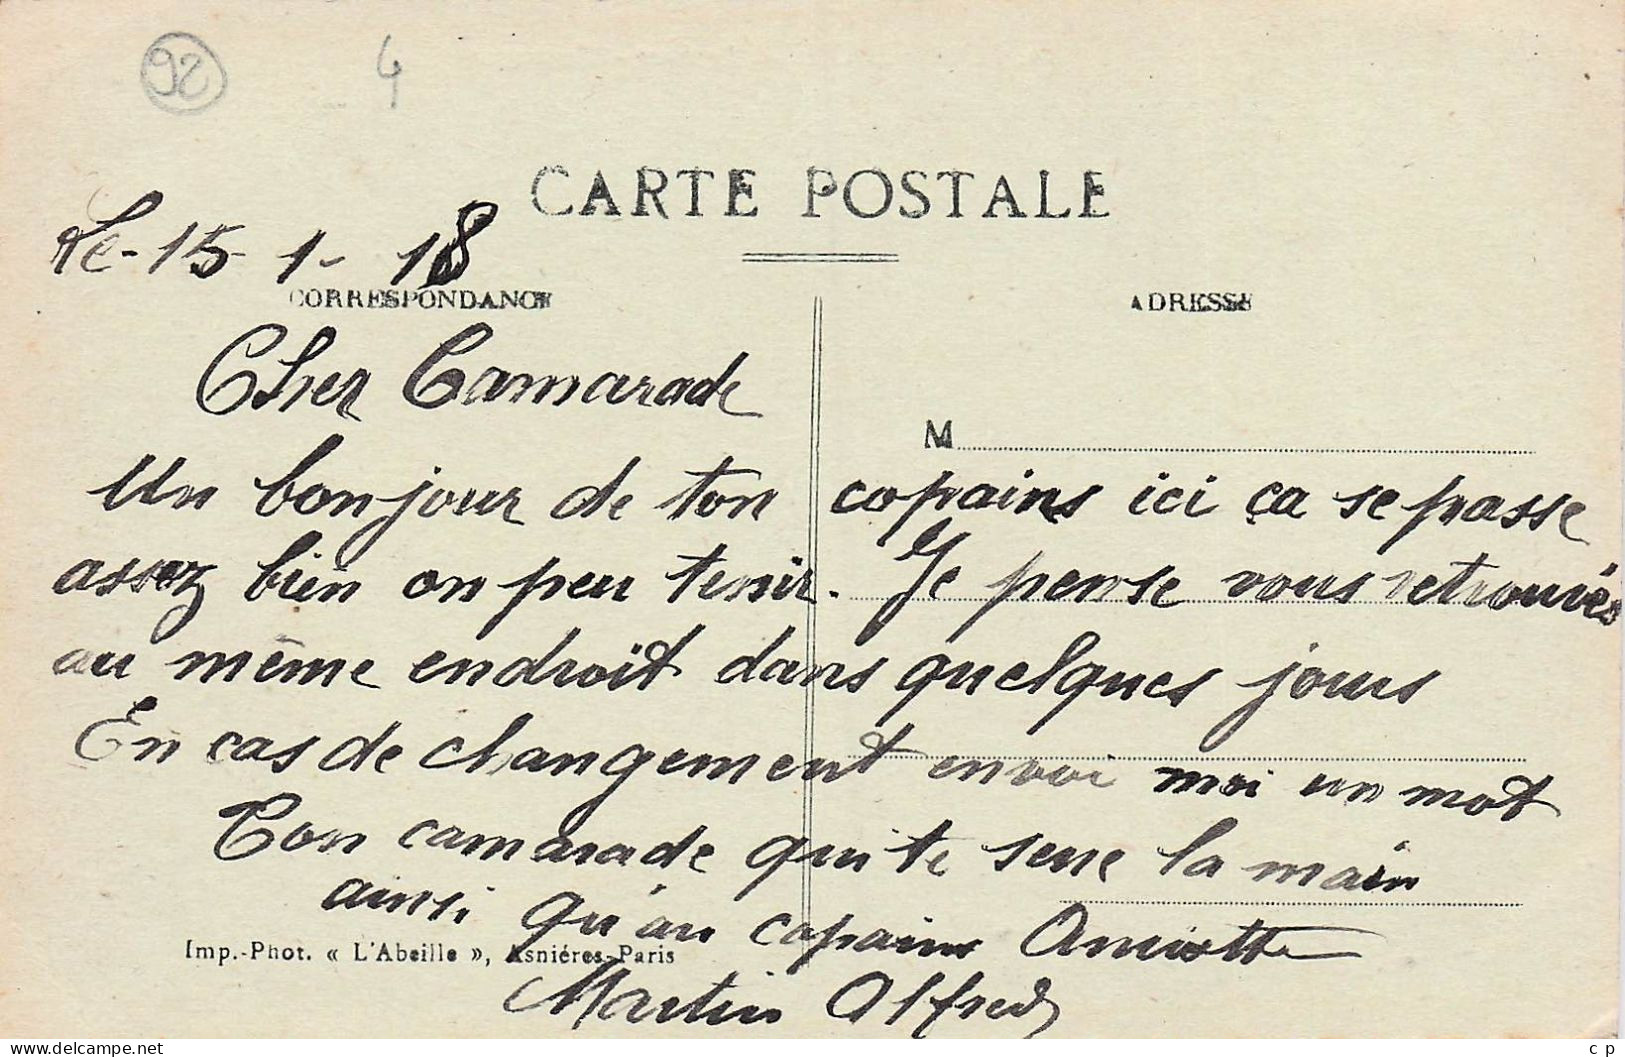 92 4
CARTE POSTALE
Le - 15 - 1 - 18
CORRESPONDANCE ADRESSE
Cher Camarade
M
Un bonjour de ton copains ici ça se passe
assez bien on peu tenir. Je pense vous retrouvés
au même endroit dans quelques jours
En cas de changement envoi moi un mot
Ton camarade qui te serre la main
ainsi qu'au copains
Imp.-Phot. « L'Abeille », Asniéres-Paris
Martin Alfred
www.delcampe.net
c p